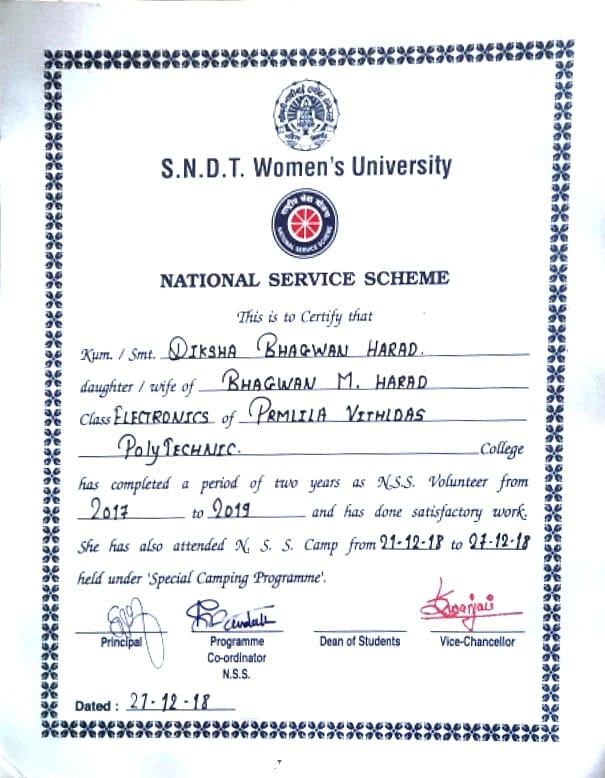 S.N.D.T. Women's University
राष्ट्रीय सेवा योजना
NATIONAL SERVICE SCHEME
NATIONAL SERVICE SCHEME
This is to Certify that
Kum. / Smt. DIKSHA BHAGWAN HARAD.
daughter / wife of BHAGWAN M. HARAD
Class ELECTRONICS of PRMLILA VITHLDAS
POLYTECHNIC. College
has completed a period of two years as N.S.S. Volunteer from
2017 to 2019 and has done satisfactory work.
She has also attended N. S. S. Camp from 21-12-18 to 27-12-18
held under 'Special Camping Programme'.
Principal Programme Dean of Students Vice-Chancellor
Co-ordinator
N.S.S.
Dated : 27-12-18